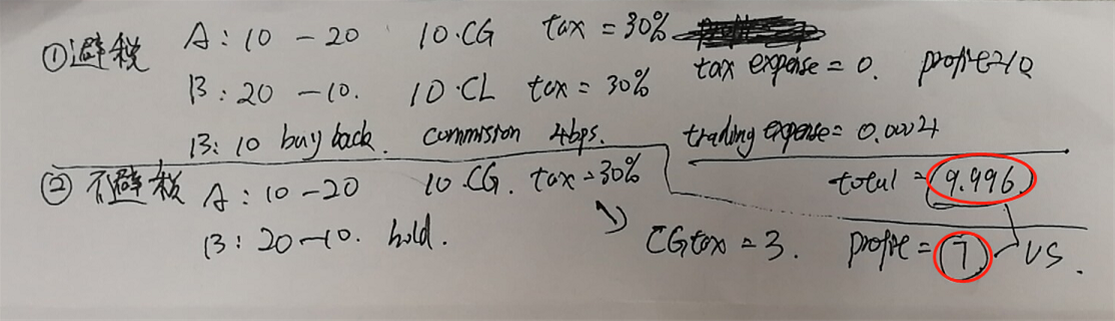 ①避税 A: 10 - 20 10.CG tax = 30%
tax expense = 0. profit=10
B: 20 - 10. 10.CL tax = 30%
B: 10 buy back. commission 4bps. trading expense = 0.0004
total = 9.996
② 不避税 A: 10 - 20 10.CG. tax = 30%
B: 20 - 10. hold.
CG tax = 3. profit = 7 VS.